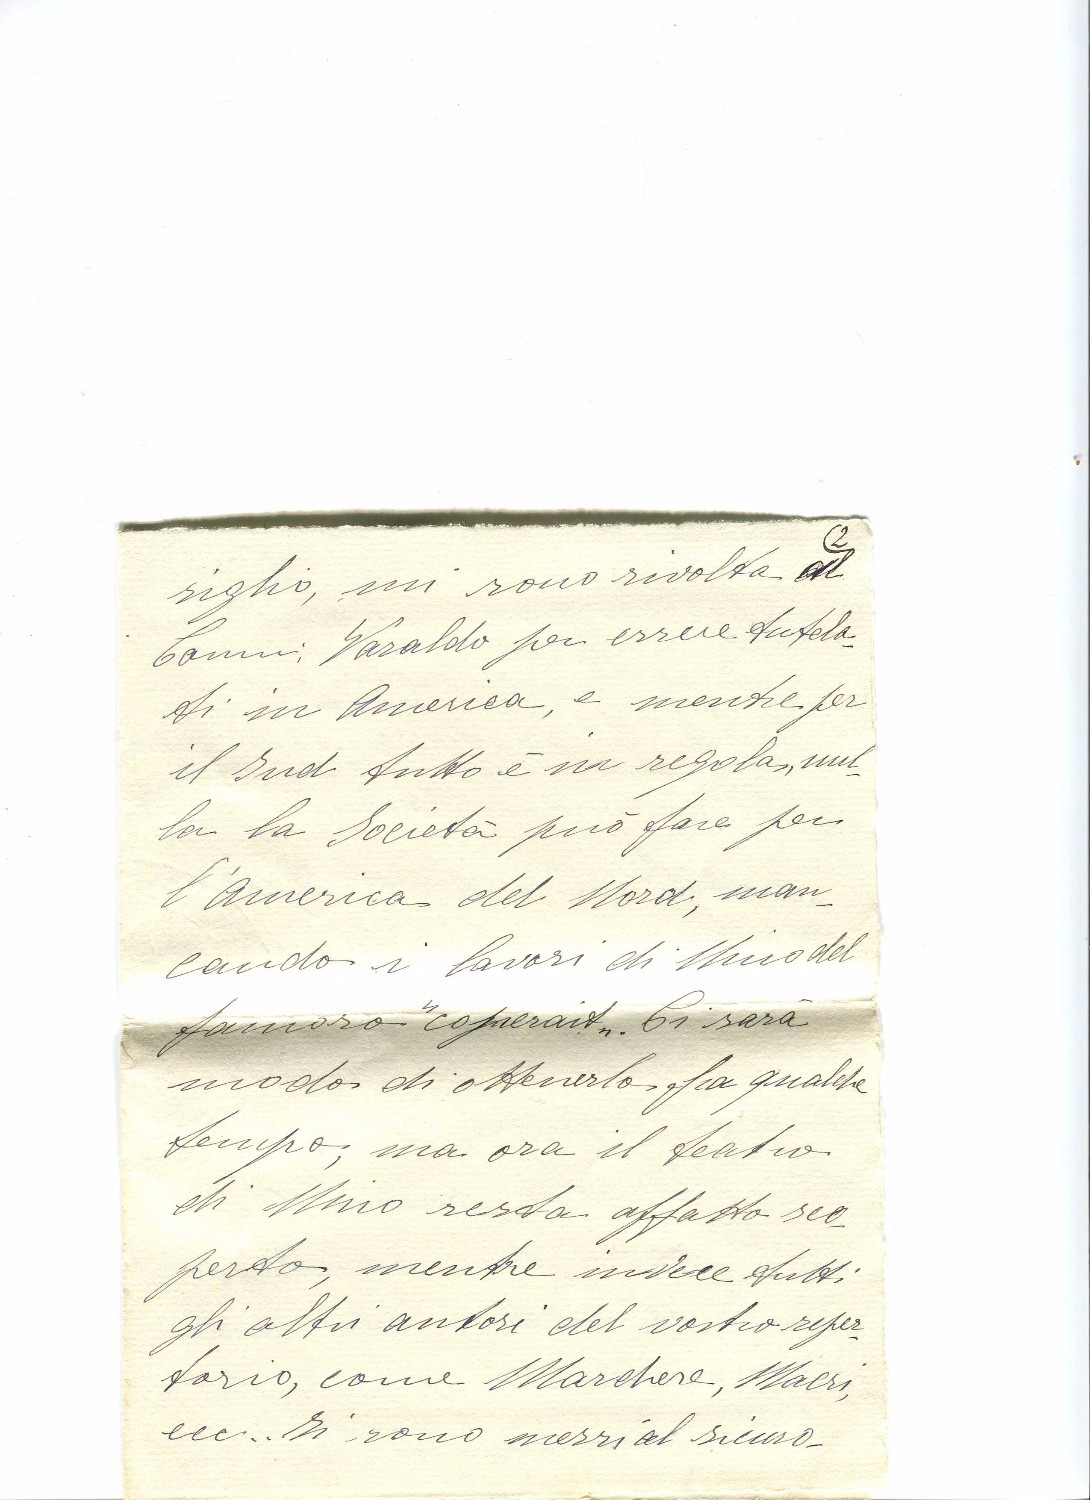 (2
siglio, mi sono rivolta al
Comm. Varaldo per essere tutela-
ti in America, e mentre per
il Sud tutto è in regola, nul-
la la Società può fare per
l'America del Nord, man-
cando i lavori di Nino del
famoso "coperait". Ci sarà
modo di ottenerlo fra qualche
tempo, ma ora il teatro
di Nino resta affatto sco-
perto, mentre invece tutti
gli altri autori del vostro reper-
torio, come Marchese, Macrì,
ecc.. Si sono messi al sicuro-